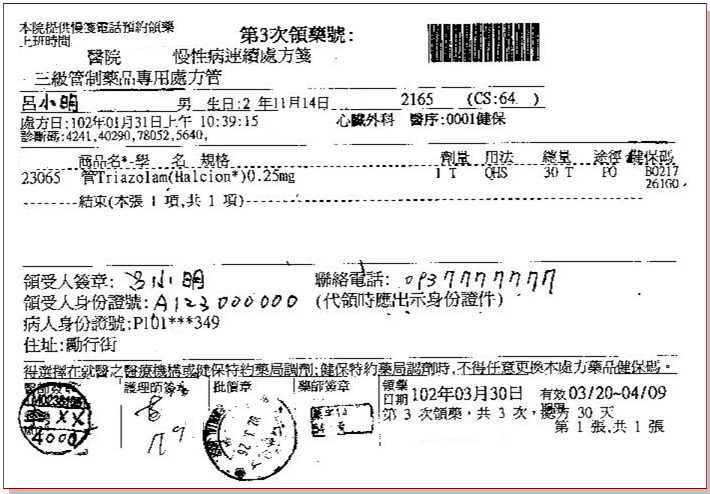 本院提供慢箋電話預約領藥
上班時間
第3次領藥號:
醫院 慢性病連續處方箋
三級管制藥品專用處方管
呂小明 男 生日:2 年11月14日 2165 (CS:64 )
處方日:102年01月31日上午 10:39:15 心臟外科 醫序:0001健保
診斷碼:4241,40290,78052,5640,
商品名*-學 名 規格 劑量 用法 總量 途徑 健保碼
23065 管Triazolam(Halcion*)0.25mg 1 T QHS 30 T PO B0217
261G0
--------結束(本張 1 項,共 1 項)--------
領受人簽章: 呂小明 聯絡電話: 0937777777
領受人身份證號: A123000000 (代領時應出示身份證件)
病人身份證號:P101***349
住址:勵行街
得選擇在就醫之醫療機構或健保特約藥局調劑;健保特約藥局調劑時,不得任意更換本處方藥品健保碼。
護理師簽章 批價章 藥師簽章 領藥
日期 102年03月30日 有效
期限 03/20~04/09
XX
4000
第 3 次領藥,共 3 次,處方 30 天
第 1 張,共 1 張